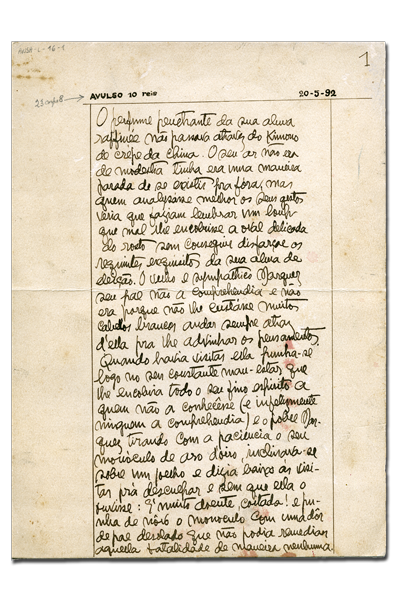 ANBA-L-16-1
1
23 x 17,8
AVULSO 10 reis
20-5-92
O perfume penetrante da sua alma
raffinée não passava atravez do Kimono
de crépe da China. O seu ar não era
de modestia tinha era uma maneira
parada de se existir pra fóra, mas
quem analysasse melhor os seus gestos
veria que faziam lembrar um loup
que mal lhe encobrisse a oval delicada
do rosto sem conseguir disfarçar os
requintes exquisitos da sua alma de
eleição. O velho e sympathico Marquez
seu pae não a comprehendia e não
era porque não lhe custasse muitos
cabelos brancos andar sempre atraz
d'ella pra lhe advinhar os pensamentos.
Quando havia visitas ella punha-se
logo no seu constante mau-estar que
lhe encobria todo o seu fino espirito a
quem não a conhecêsse (e infelizmente
ninguem a comprehendia) e o pobre Mar-
quez tirando com a paciencia o seu
monoculo de aro d'oiro, inclinava-se
sobre um joelho e dizia baixo as visi-
tas prá desculpar e sem que ella o
ouvisse: É muito doente, coitada! e pu-
nha de nôvo o monoculo com uma dôr
de pae desolado que não podia remediar
aquella fatalidade de maneira nenhuma